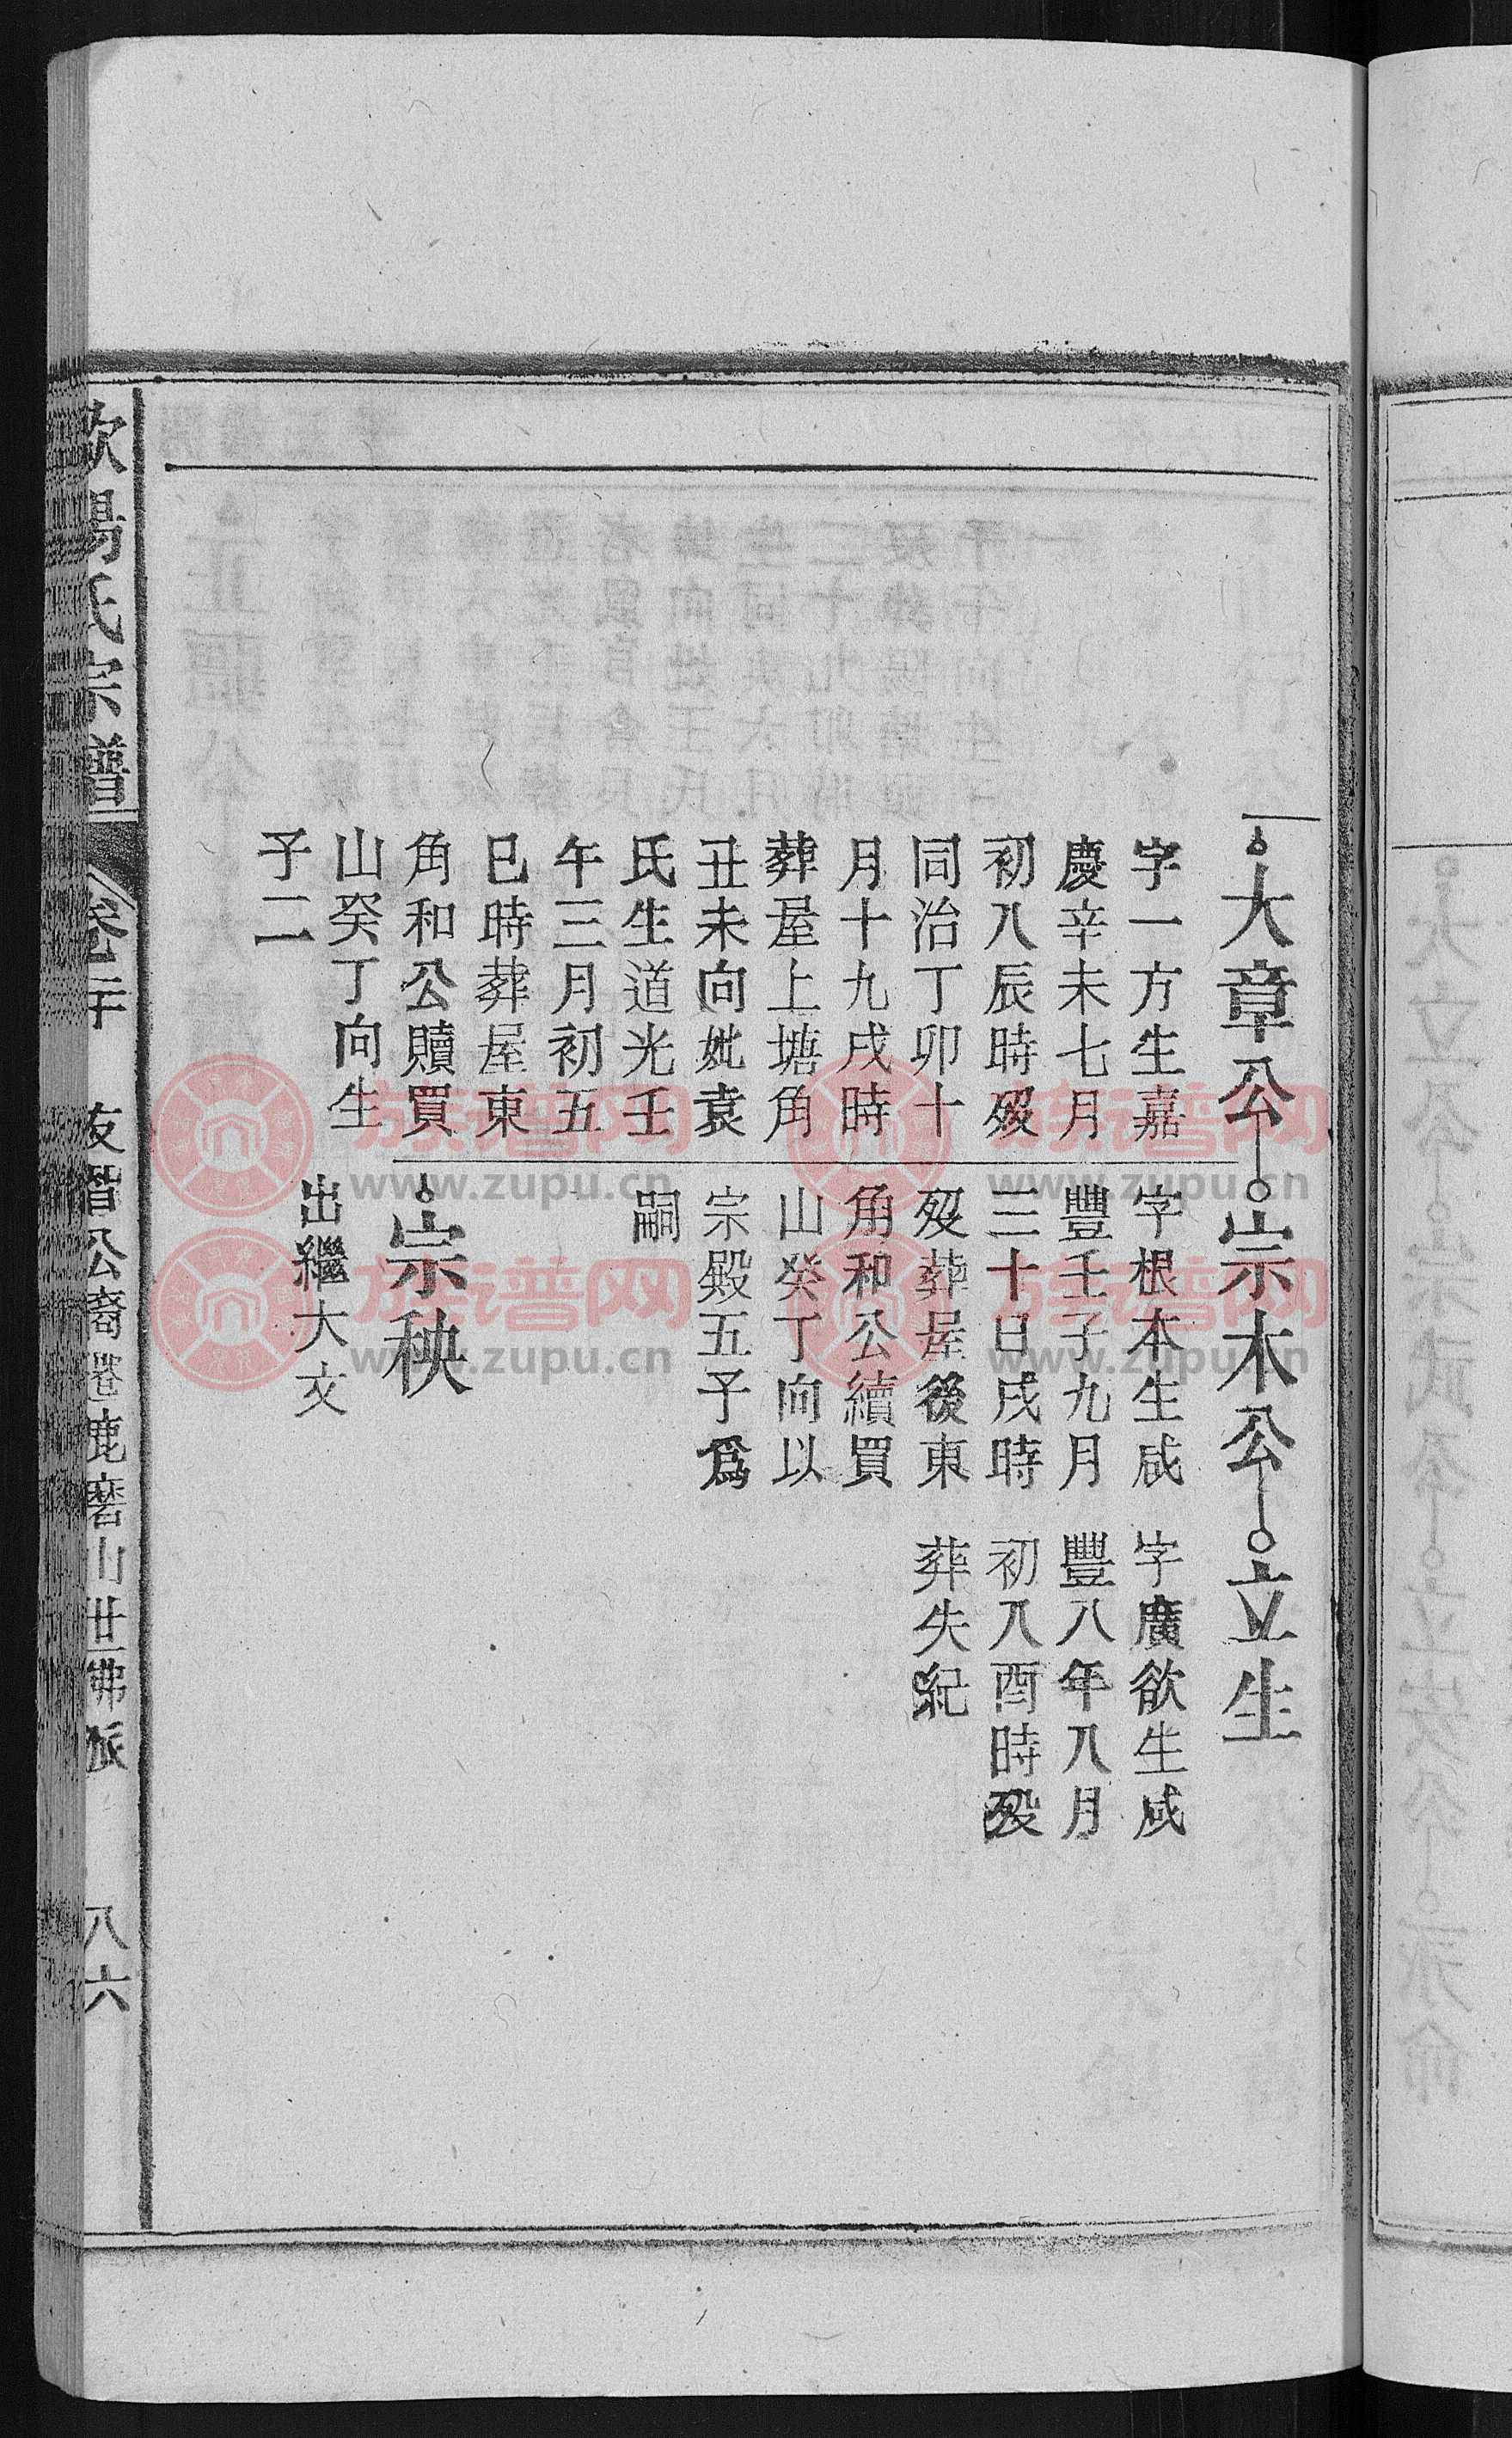 大章公
字一方生嘉
慶辛未七月
初八辰時歿
同治丁卯十
月十九戌時
葬屋上塘角
丑未向妣袁
氏生道光壬
午三月初五
巳時葬屋東
角和公贖買
山癸丁向生
子二
宗木公
字根本生咸
豐壬子九月
三十日戌時
歿葬屋後東
角和公續買
山癸丁向以
宗殿五子爲
嗣
宗秧
出繼大文
立生
字廣欲生咸
豐八年八月
初八酉時歿
葬失紀
氏宗譜
友智公裔鹿磨山世佛派
八六
族谱网
www.zupu.cn
族谱网
www.zupu.cn
族谱网
www.zupu.cn
族谱网
www.zupu.cn